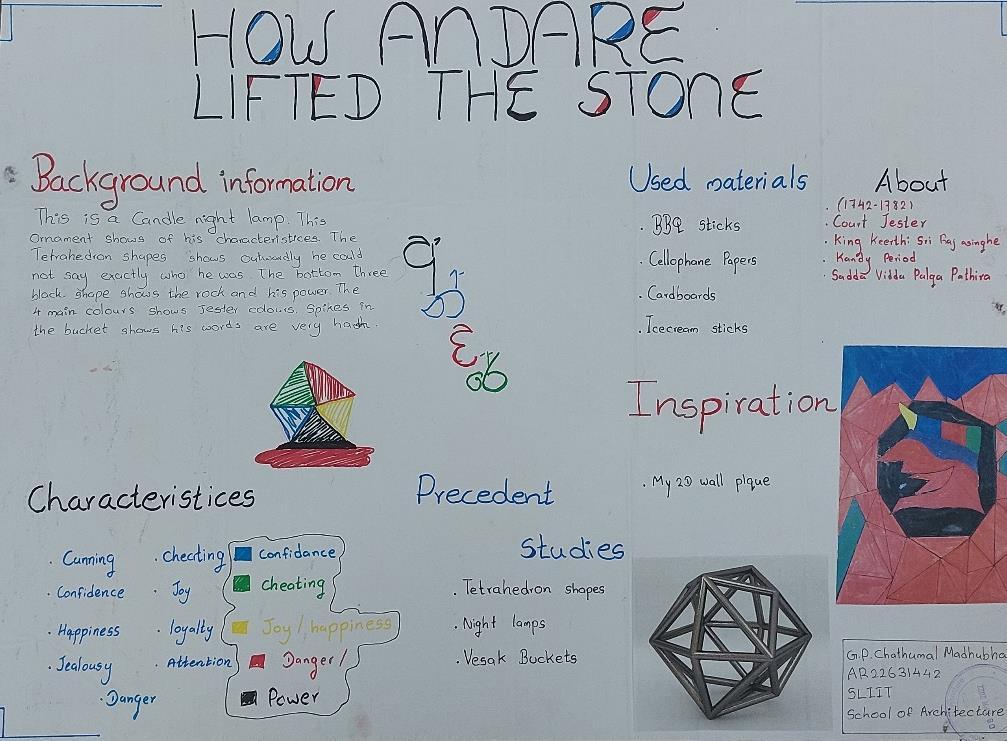 HOW ANDARE
LIFTED THE STONE
Background information
This is a Candle night lamp. This
Ornament shows of his characteristices. The
Tetrahedron shapes shows outwardly he could
not say exactly who he was. The bottom three
black shape shows the rock and his power. The
4 main colours shows Jester colours. Spikes in
the bucket shows his words are very harh.
Used materials
. BBQ sticks
. Cellophane Papers
. Cardboards
. Icecream sticks
About
. (1742-1782)
. Court Jester
. King Keerthi Sri Rajasinghe
. Kandy Period
. Sadda Vidda Palga Pathira
Inspiration
. My 2D wall plque
Characteristices
. Cunning
. Confidence
. Happiness
. Jealousy
. Danger
. Cheating
. Joy
. loyalty
. Attention
Confidance
Cheating
Joy / happiness
Danger /
Power
Precedent
Studies
. Tetrahedron shapes
. Night lamps
. Vesak Buckets
G.P. Chathumal Madhubha
AR22631442
SLIIT
School of Architecture